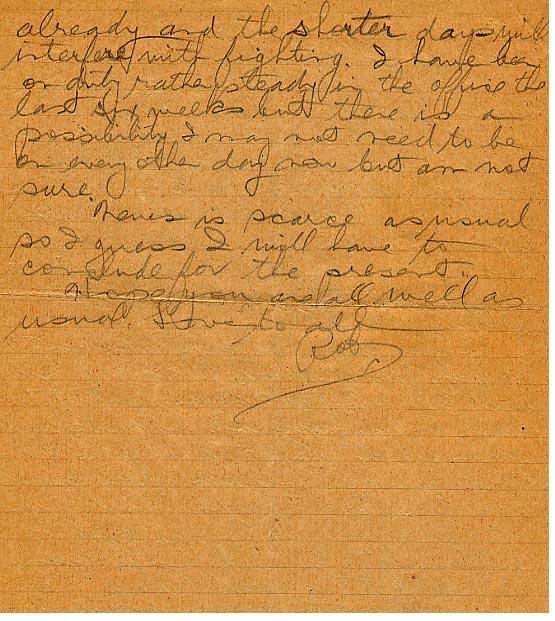 already and the shorter days will
interfere with fighting. I have been
on duty rather steady in the office the
last six weeks but there is a
possibility I may not need to be
on every other day now but am not
sure.
News is scarce as usual
so I guess I will have to
conclude for the present.
Hope you and all well as
usual. Love to all
Rob